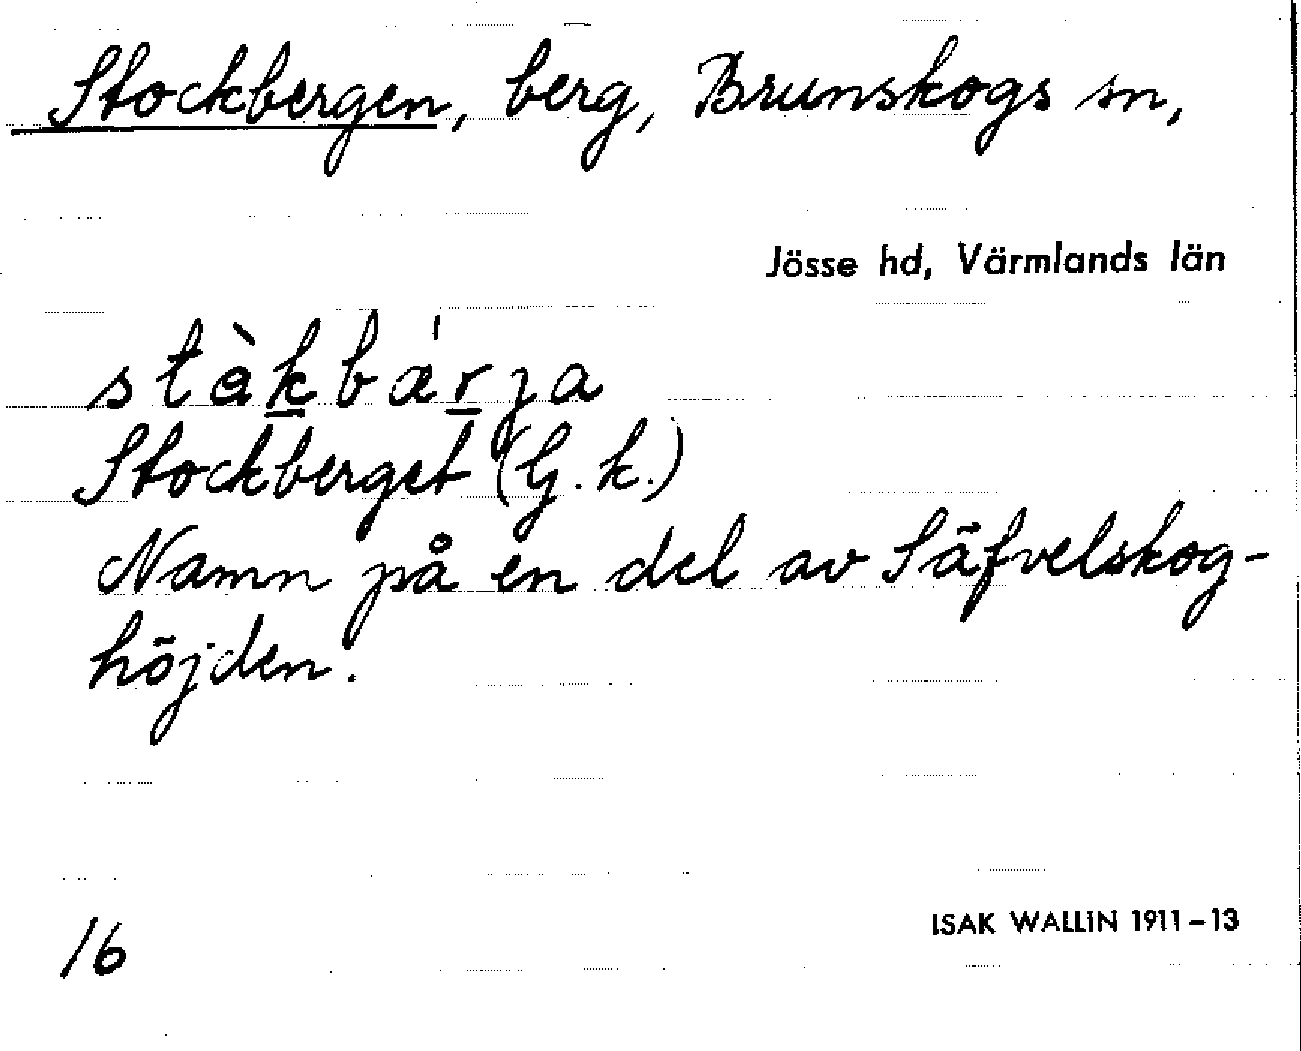 Stockbergen, berg, Brunskogs sn,
Jösse hd, Värmlands län
stə̀kbærja
Stockberget (G.k.)
Namn på en del av Säfvelskog-
höjden.
16
ISAK WALLIN 1911-13